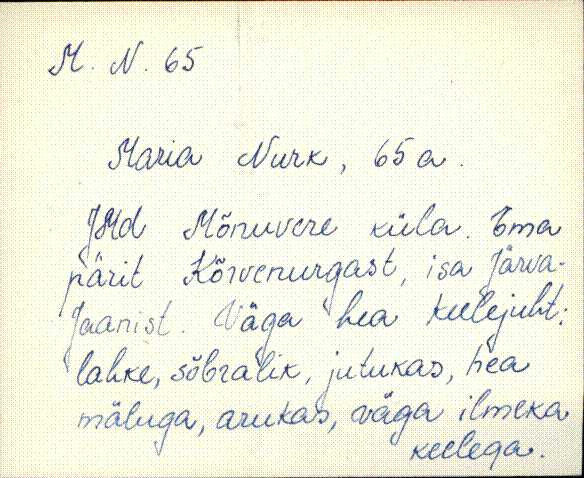 M. N. 65
Maria Nurk, 65 a.
JMd Mõnuvere küla. Ema
pärit Kõrvenurgast, isa Järva-
Jaanist. Väga hea keelejuht:
lahke, sõbralik, jutukas, hea
mäluga, arukas, väga ilmeka
keelega.